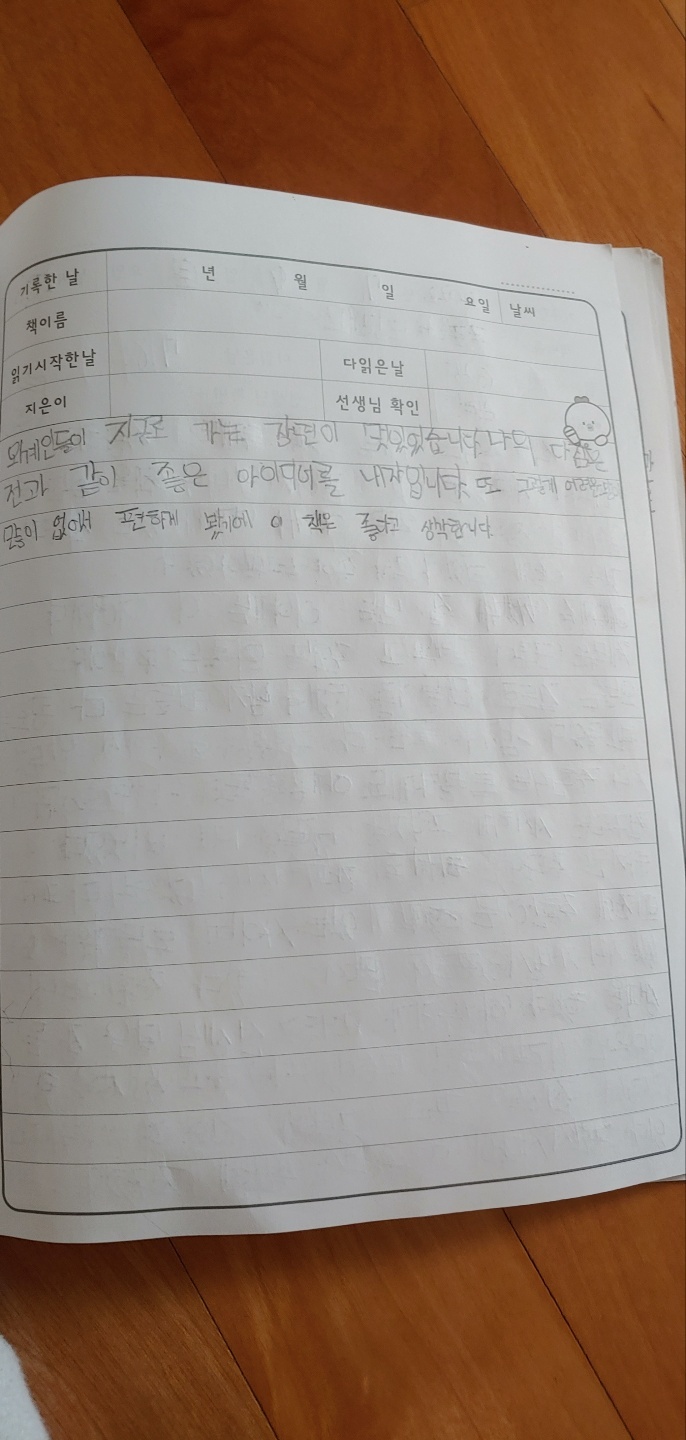 기록한 날 년 월 일 요일 날씨
책이름
읽기시작한날 다읽은날
지은이 선생님 확인
외계인들이 지구로 가는 장면이 맛있었습니다. 나의 다짐은
전과 같이 좋은 아이디어를 내자입니다. 또 그렇게 어려운
많이 없어서 편하게 봤기에 이 책은 좋다고 생각합니다.